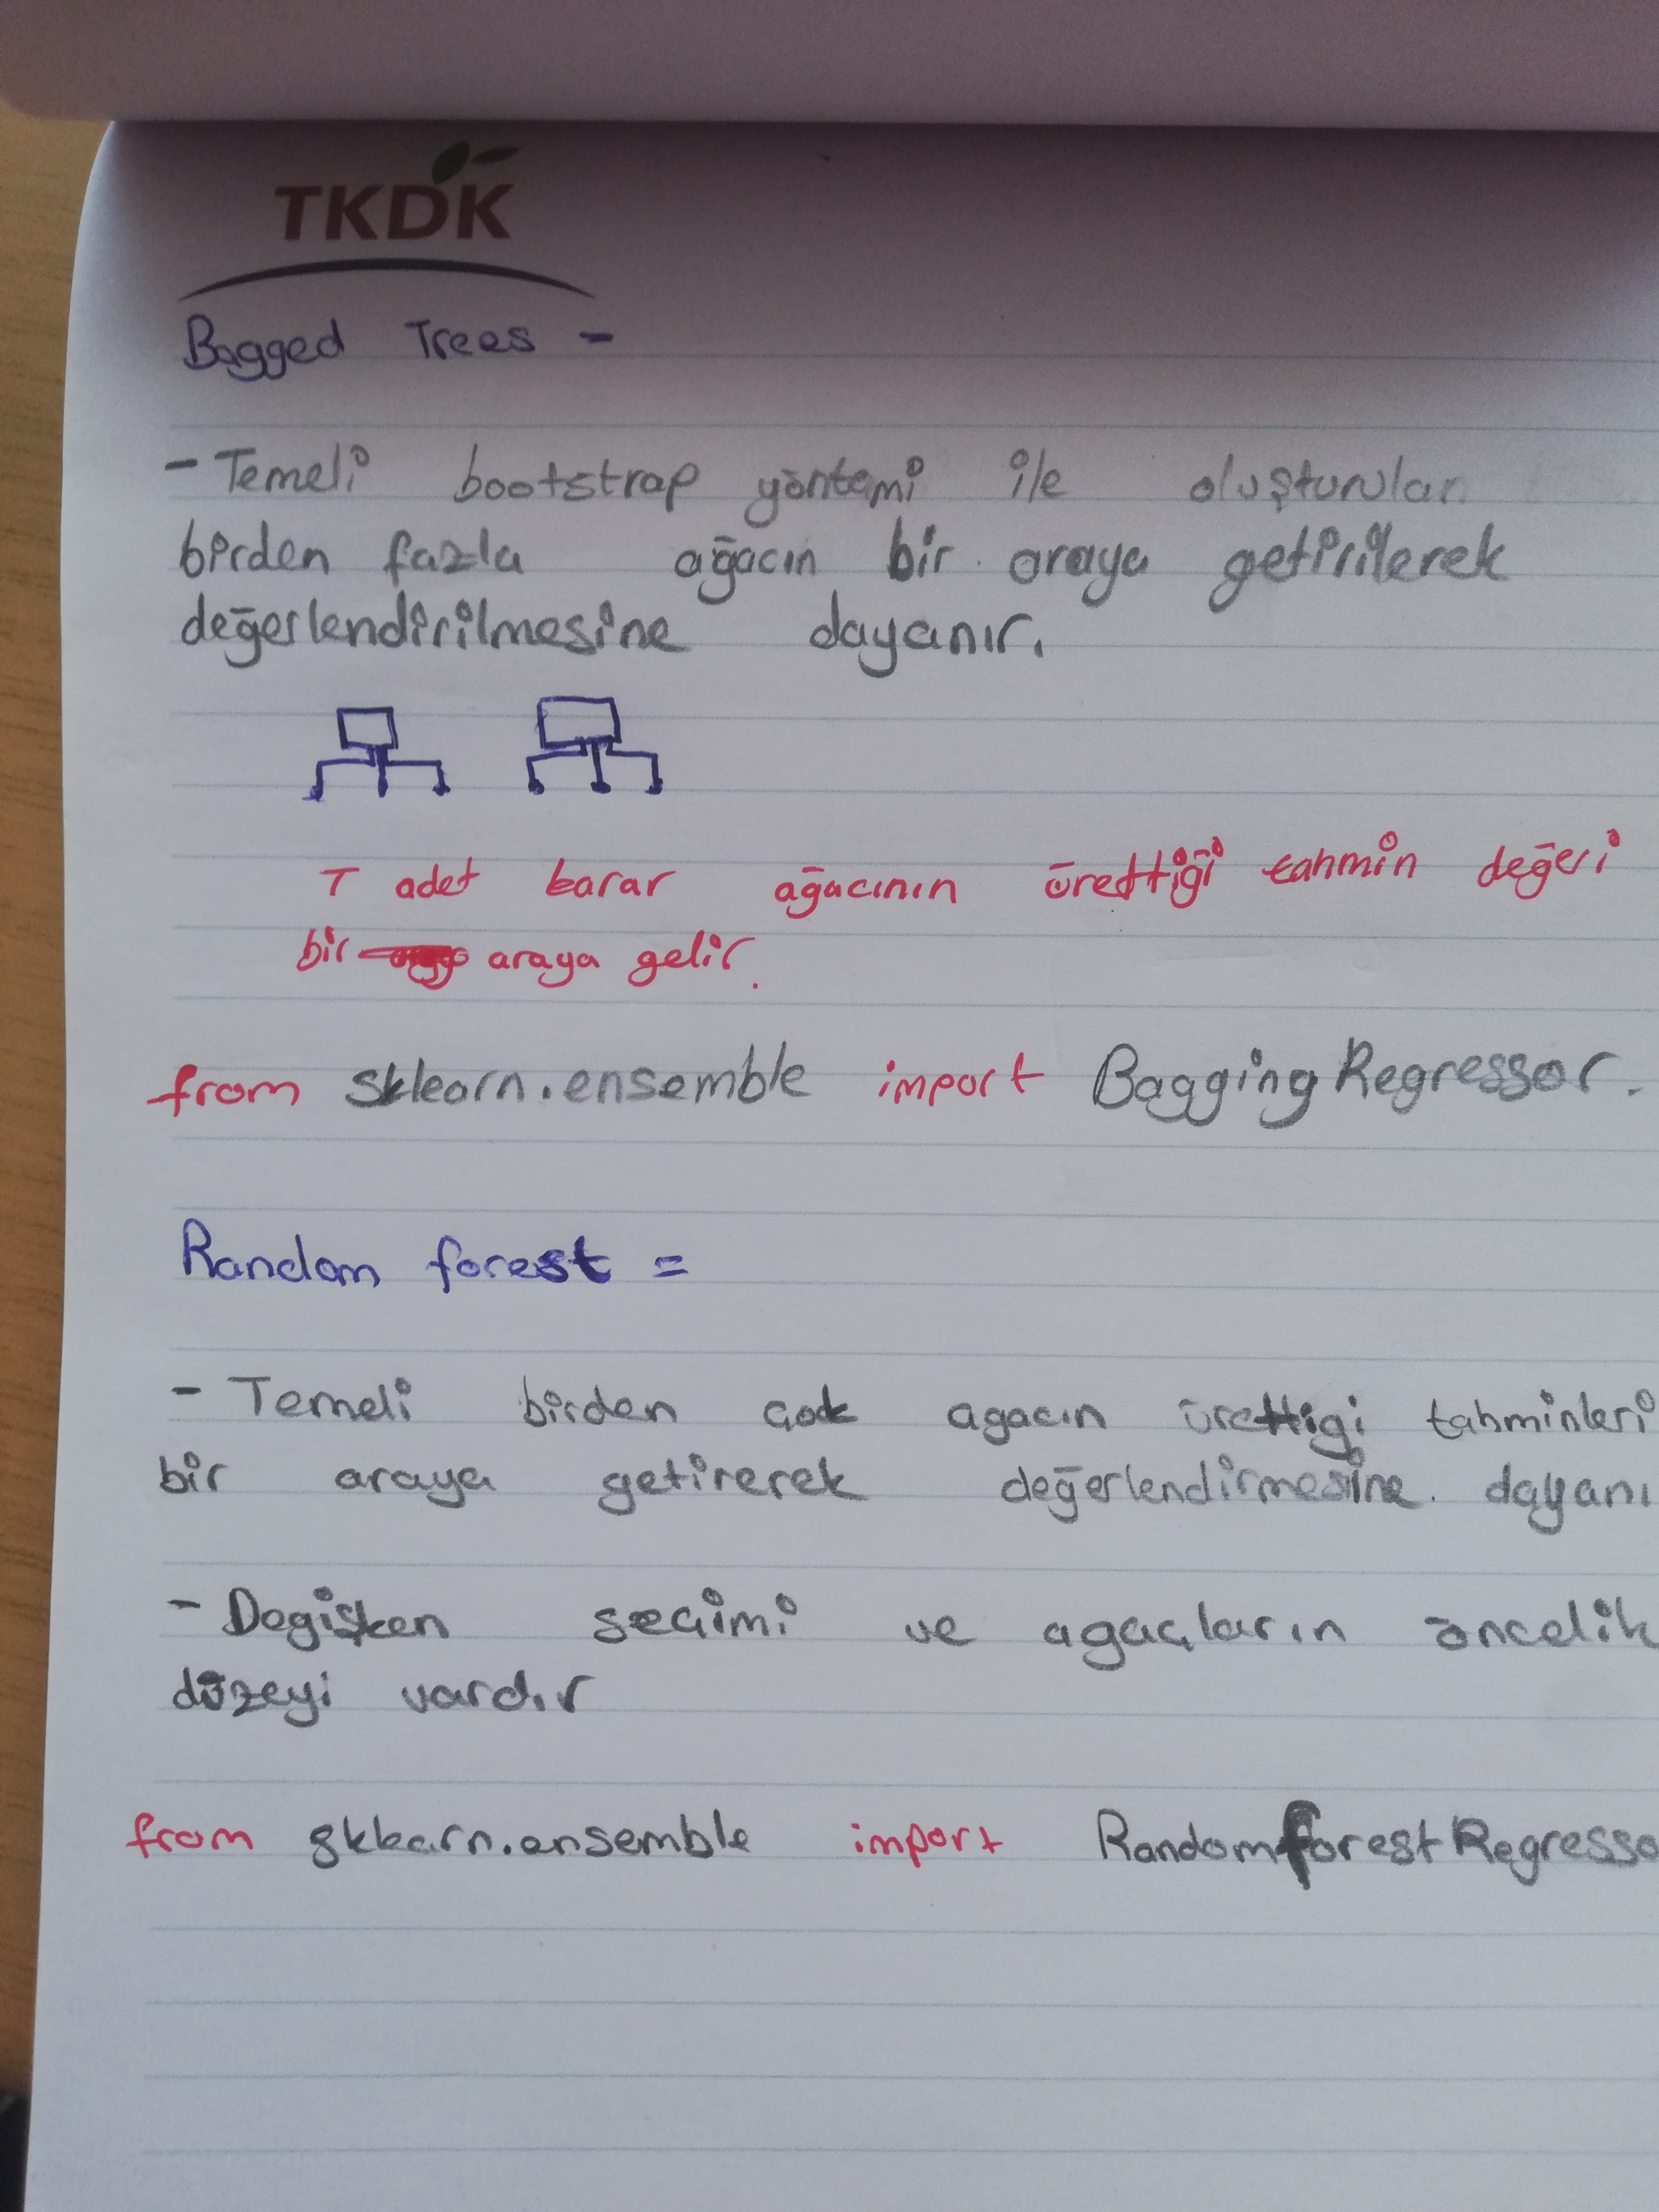 TKDK
Bagged Trees -
- Temeli bootstrap yöntemi ile oluşturulan
birden fazla ağacın bir araya getirilerek
değerlendirilmesine dayanır.
T adet karar ağacının ürettiği tahmin değeri
bir araya gelir.
from sklearn.ensemble import BaggingRegressor.
Random forest =
- Temeli birden çok agacın ürettigi tahminleri
bir araya getirerek değerlendirmesine dayanı
- Degişken seçimi ve agaçların öncelik
düzeyi vardır
from sklearn.ensemble import RandomforestRegresso